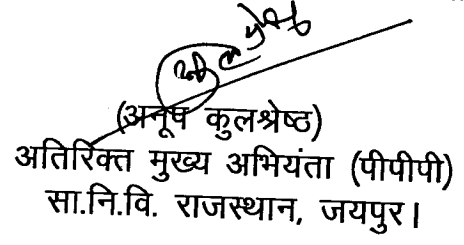 (अनूप कुलश्रेष्ठ)
अतिरिक्त मुख्य अभियंता (पीपीपी)
सा.नि.वि. राजस्थान, जयपुर।